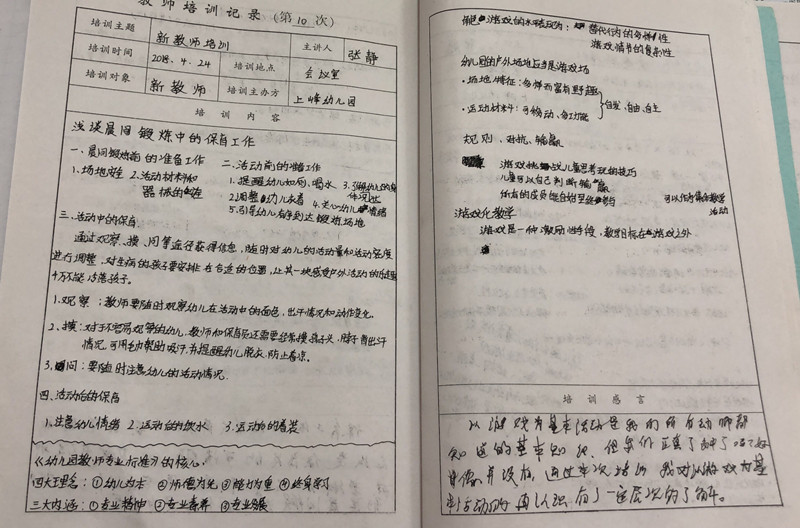 教师培训记录(第10次)
培训主题 新教师培训 主讲人 张静
培训时间 2018.4.24 培训地点 会议室
培训对象 新教师 培训主办方 上峰幼儿园
培训内容
浅谈晨间锻炼中的保育工作
一、晨间锻炼前的准备工作
1.场地安全 2.活动材料和器械的
二、活动前的准备工作
1.提醒幼儿如厕、喝水 3.
2.调整幼儿衣着 4.关心幼儿情绪
5.引导幼儿有序到达锻炼场地
三、活动中的保育
通过观察、摸、问等途径获得信息,随时对幼儿的活动量和活动强度
进行调整,对生病的孩子要安排在合适的位置,让其一块感受户外活动的乐趣
千万不能忽略孩子。
1.观察:教师要随时观察幼儿在活动中的面色,出汗情况和动作变化。
2、摸:对于不容易观察的幼儿,教师和保育员还需要经常摸孩子头、脖子背出汗
情况,可用毛巾帮助吸汗,并提醒幼儿脱衣,防止着凉。
3.问:要随时注意幼儿的活动情况.
四、活动后的保育
1.注意幼儿情绪 2.运动后的饮水 3.运动后的着装
《幼儿园教师专业标准》的核心:
四大理念:①幼儿为本 ②师德为先 ③能力为重 ④终身学习
三大内涵:①专业精神 ②专业素养 ③专业发展
游戏的水平表现为:替代行为的多样性
游戏情节的复杂性
幼儿园的户外场地应当是游戏场
·场地特征:多样而富有野趣
·运动材料:可移动、多功能
自发、自由、自主
规则、对抗、输赢
游戏挑战幼儿思考玩的技巧
儿童可以自己判断输赢
所有的成员能自始至终参与
可以作为集体教学活动
游戏化教学
游戏是一种激励性手段,教学目标在游戏之外
培训感言
以游戏为基本活动是我们所有幼师都
知道的基本知识,但
通过本次培训 我对以游戏为基
本活动的再认识有了一定层次的了解。